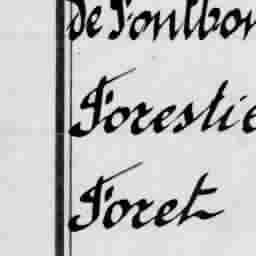 de Fontbon
Forestie
Foret